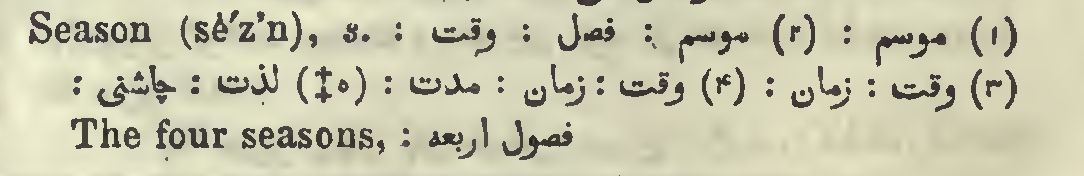 Season (sē′z’n), s. : (۱) موسم : (۲) موسم : فصل : وقت :
(۳) وقت : زمان : (۴) وقت : زمان : مدت : (‡۵) لذت : چاشنی :
The four seasons, : فصول اربعه